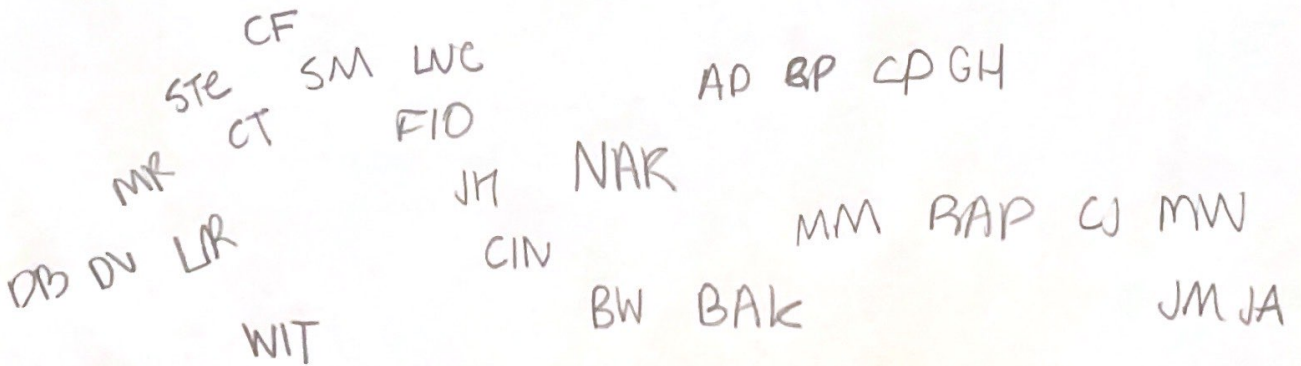 CF
STE SM LUC AD BP CP GH
CT FIO
MR JH NAK
DB DV LAR CIN MM RAP CJ MW
WIT BW BAK JM JA